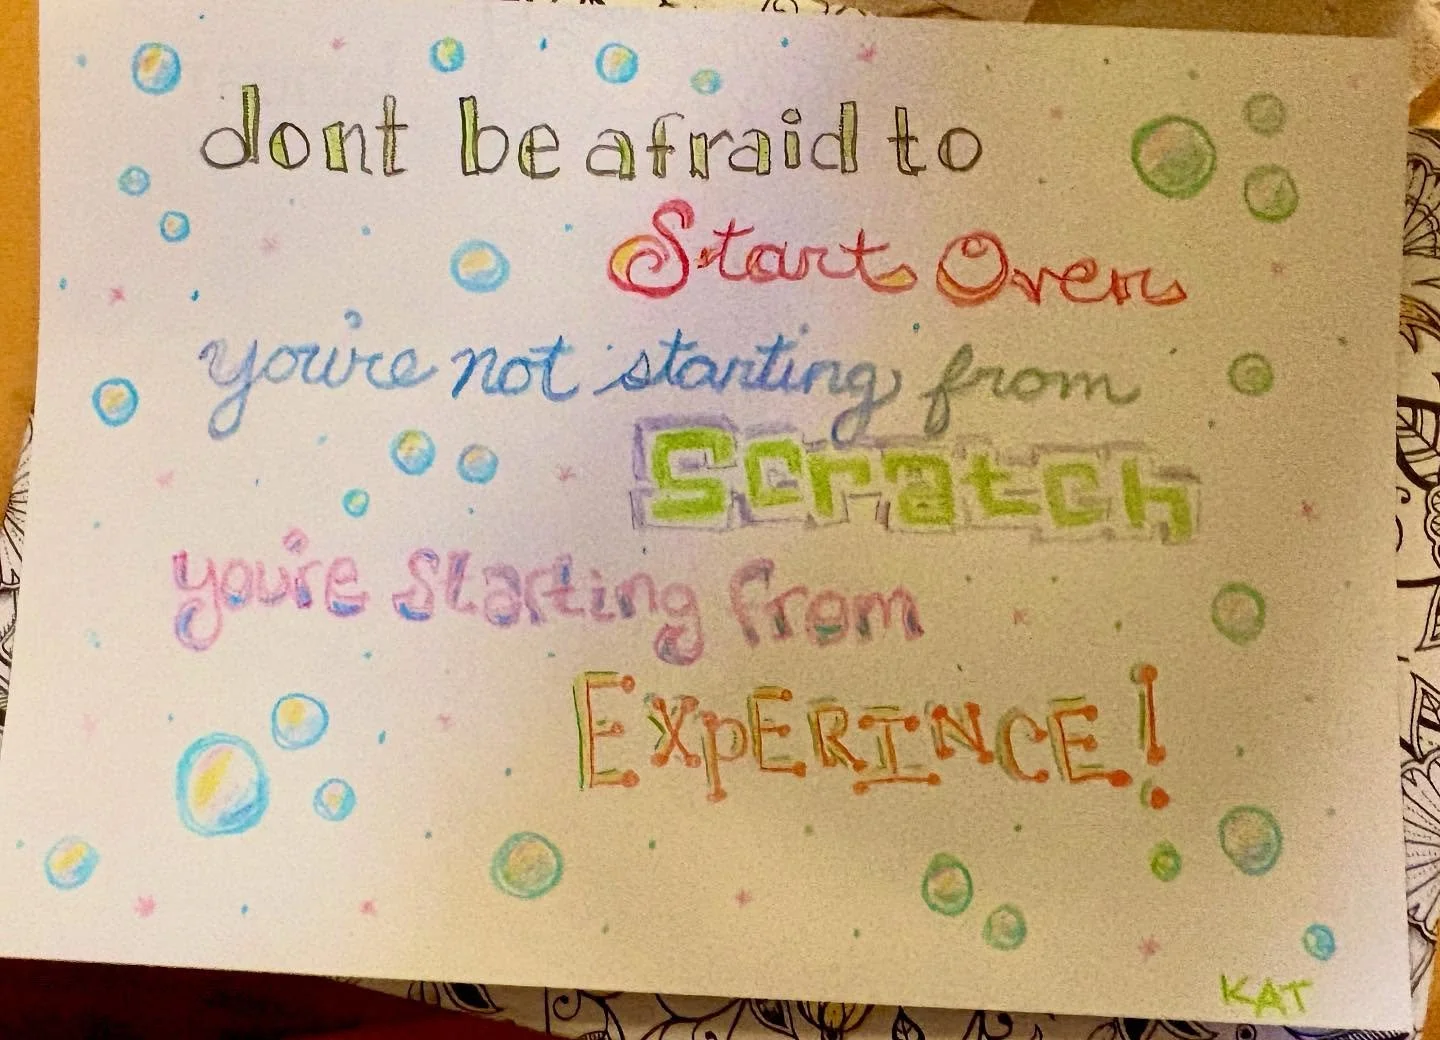 dont be afraid to
Start Over
you're not starting from
Scratch
you're starting from
EXpERINCE!
KAT